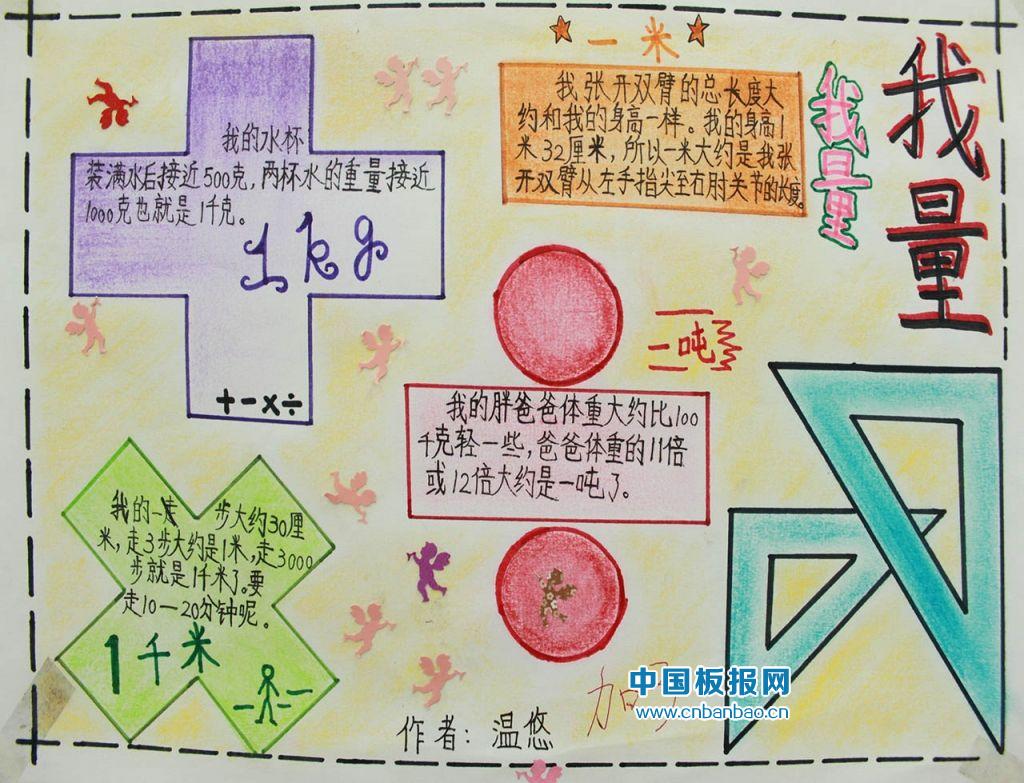 我量
我量
一米
我张开双臂的总长度大
约和我的身高一样。我的身高1
米32厘米，所以一米大约是我张
开双臂从左手指尖至右肘关节的长度。
我的水杯
装满水后接近500克，两杯水的重量接近
1000克也就是1千克。
1kg
+-×÷
一吨
我的胖爸爸体重大约比100
千克轻一些，爸爸体重的11倍
或12倍大约是一吨了。
我的一 步大约30厘
米，走3步大约是1米，走3000
步就是1千米了。要
走10—20分钟呢。
1千米
作者：温悠
中国板报网
www.cnbanbao.cn